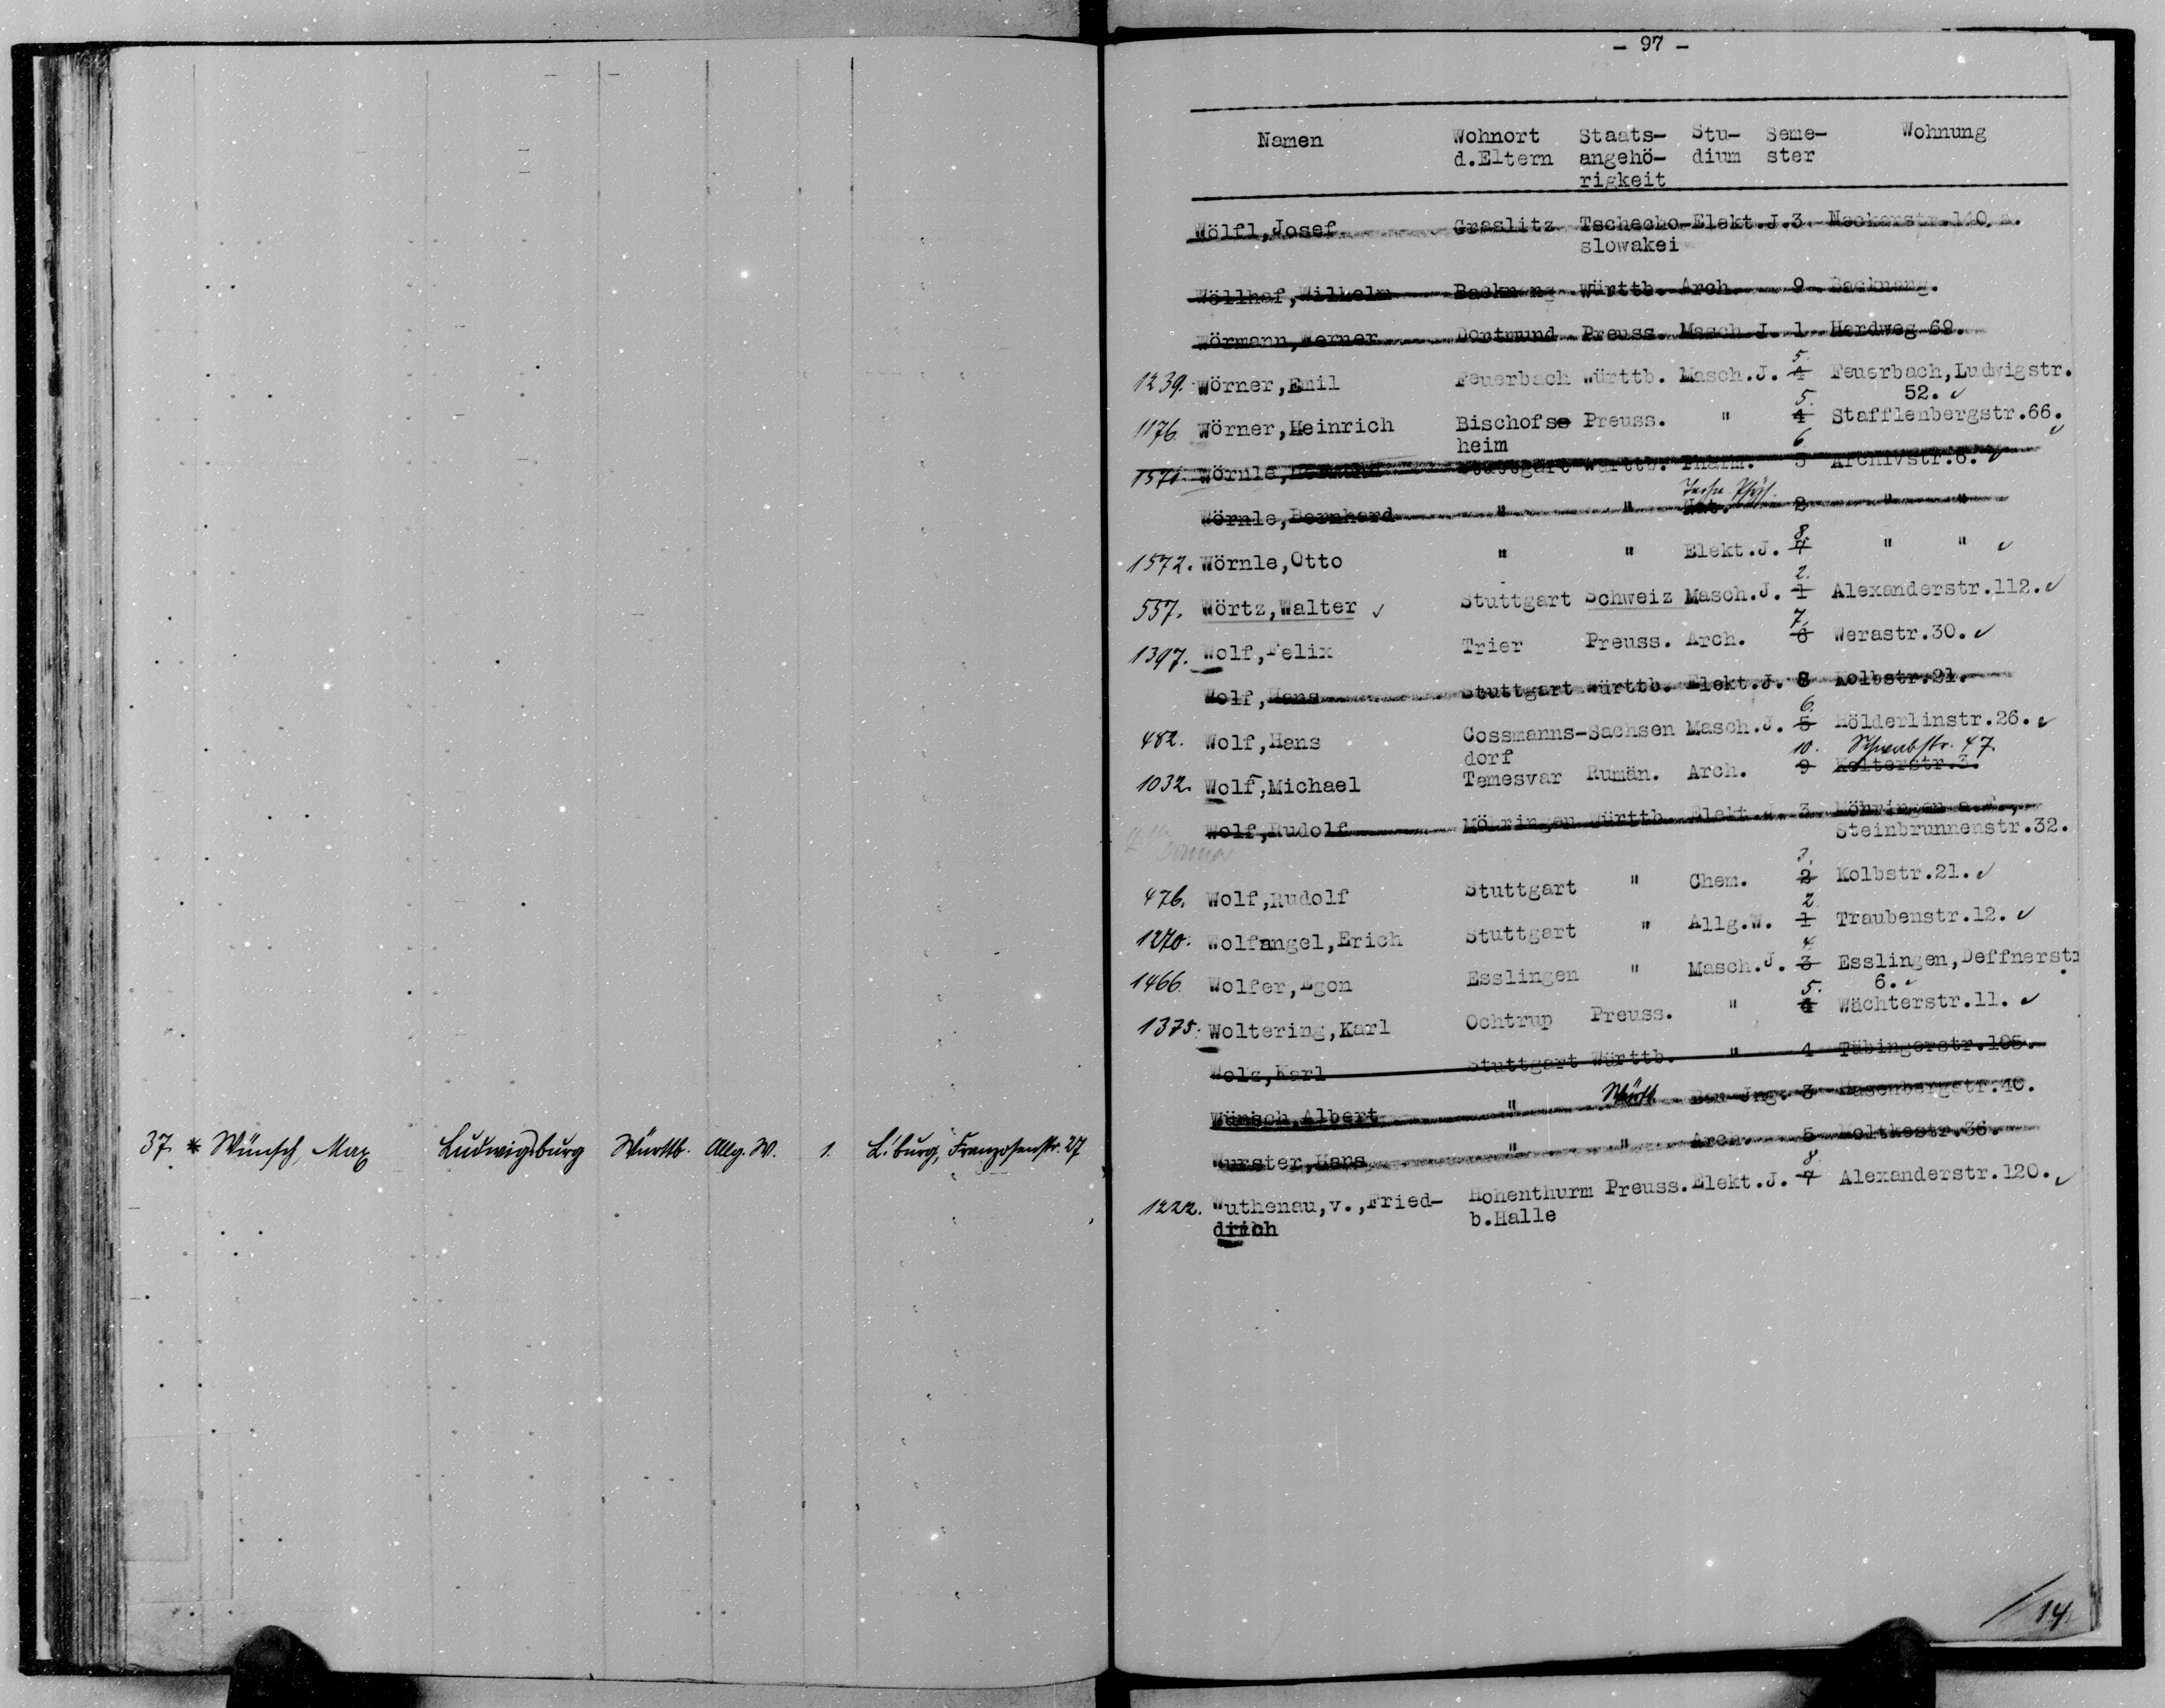 37. * Wünsch, Max Ludwigsburg Württb. Allg. W. 1. L'burg, Franzosenstr. 27
- 97 -
Namen Wohnort Staats- Stu- Seme- Wohnung
d.Eltern angehö- dium ster
rigkeit
Wölfl,Josef Graslitz Tschecho-Elekt.J.3 Neckarstr.140 a.
slowakei
Wöllhaf,Wilhelm Backnang Württb. Arch. 9 Backnang.
Wörmann,Werner Dortmund Preuss. Masch.J. 1 Herdweg 69.
5.
1239. Wörner,Emil Feuerbach Württb. Masch.J. 4 Feuerbach,Ludwigstr.
5. 52.
1176. Wörner,Heinrich Bischofs Preuss. " 4 Stafflenbergstr.66.
heim 6
1571. Wörnle, Stuttgart Württb. Pharm. 5 Archivstr.8.
Techn. Phys.
Wörnle,Bernhard " " Nat. 2 " "
8.
1572. Wörnle,Otto " " Elekt.J. 7 " "
2.
557. Wörtz,Walter Stuttgart Schweiz Masch.J. 1 Alexanderstr.112.
7.
1397. Wolf,Felix Trier Preuss. Arch. 6 Werastr.30.
Wolf,Hans Stuttgart Württb. Elekt.J. 8 Kolbstr.21.
6.
482. Wolf,Hans Cossmanns-Sachsen Masch.J. 5 Hölderlinstr.26.
dorf 10. Schwabstr. 47.
1032. Wolf,Michael Temesvar Rumän. Arch. 9 Kelterstr.3.
Wolf,Rudolf Möhringen Württb. Elekt.J. 3 Möhringen a.F.,
Steinbrunnenstr.32.
3.
476. Wolf,Rudolf Stuttgart " Chem. 2 Kolbstr.21.
2
1270. Wolfangel,Erich Stuttgart " Allg.W. 1 Traubenstr.12.
4.
1466. Wolfer,Egon Esslingen " Masch.J. 3 Esslingen,Deffnerstr
5. 6.
1375. Woltering,Karl Ochtrup Preuss. " 4 Wächterstr.11.
Wolz,Karl Stuttgart Württb. " 4 Tübingerstr.105.
Wünsch,Albert " Württ. Bau-Jng. 3 Hasenbergstr.40.
Wurster,Hans " " Arch. 5 Moltkestr.36.
8
1222. Wuthenau,v.,Fried- Hohenthurm Preuss.Elekt.J. 7 Alexanderstr.120.
drich b.Halle
14